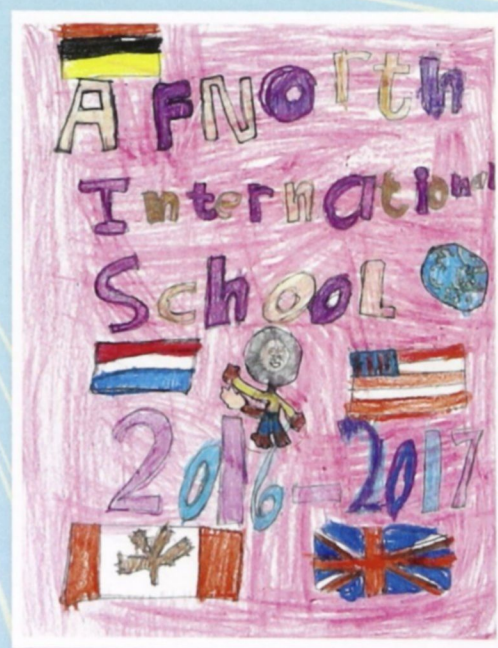 AFNorth
International
School
2016-2017